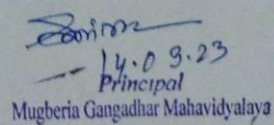 14.09.23
Principal
Mugberia Gangadhar Mahavidyalaya